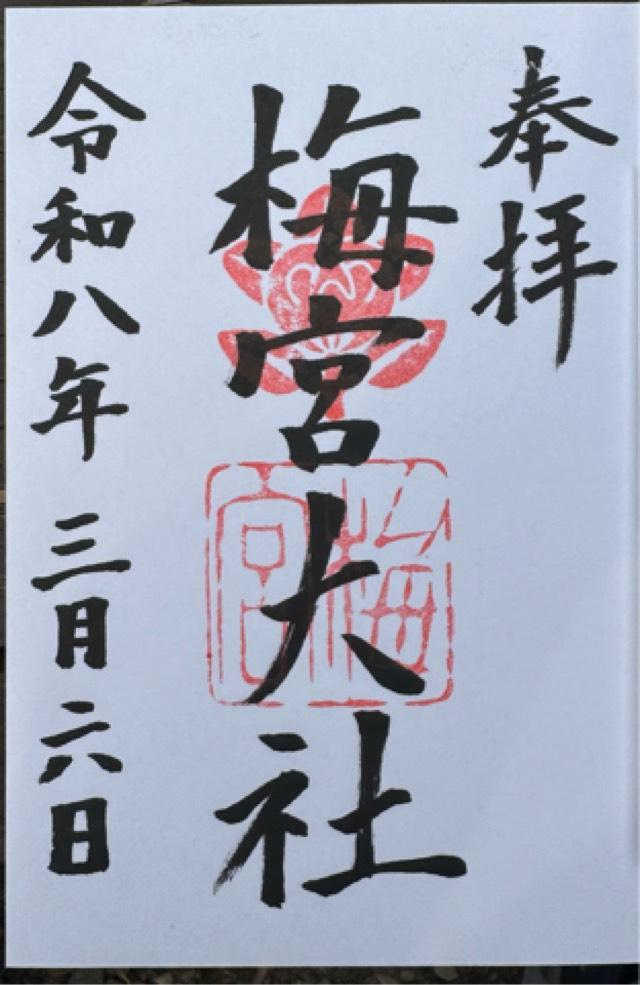 奉拝
梅宮大社
梅宮
令和八年 三月六日